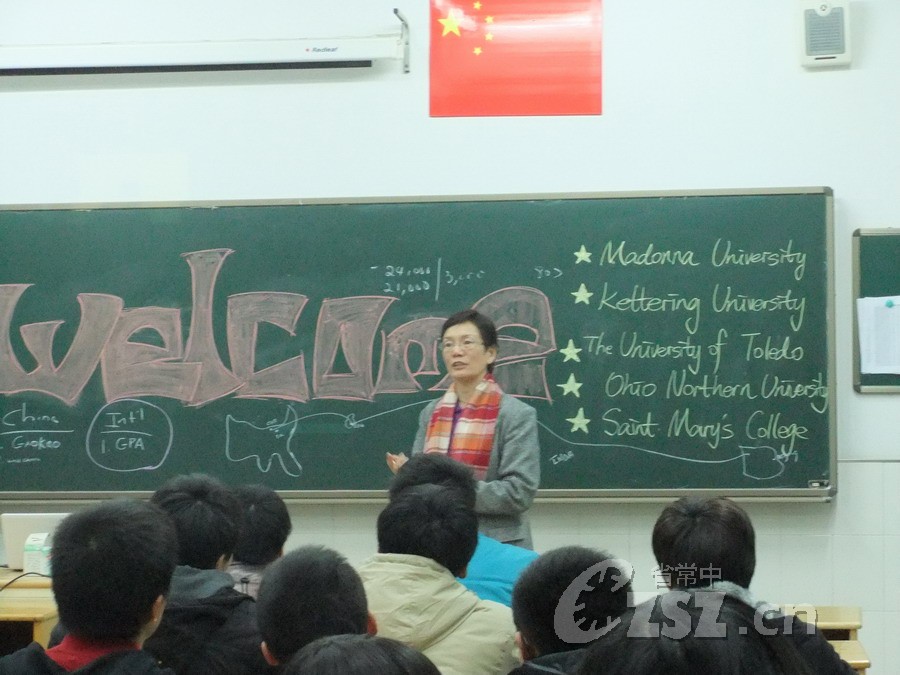 welcome
- 24,000
21,000
★ Madonna University
★ Kettering University
★ The University of Toledo
★ Ohio Northern University
★ Saint Mary's College
China
Gaokao
Int'l
1. GPA
省常中
CZSZ.cn